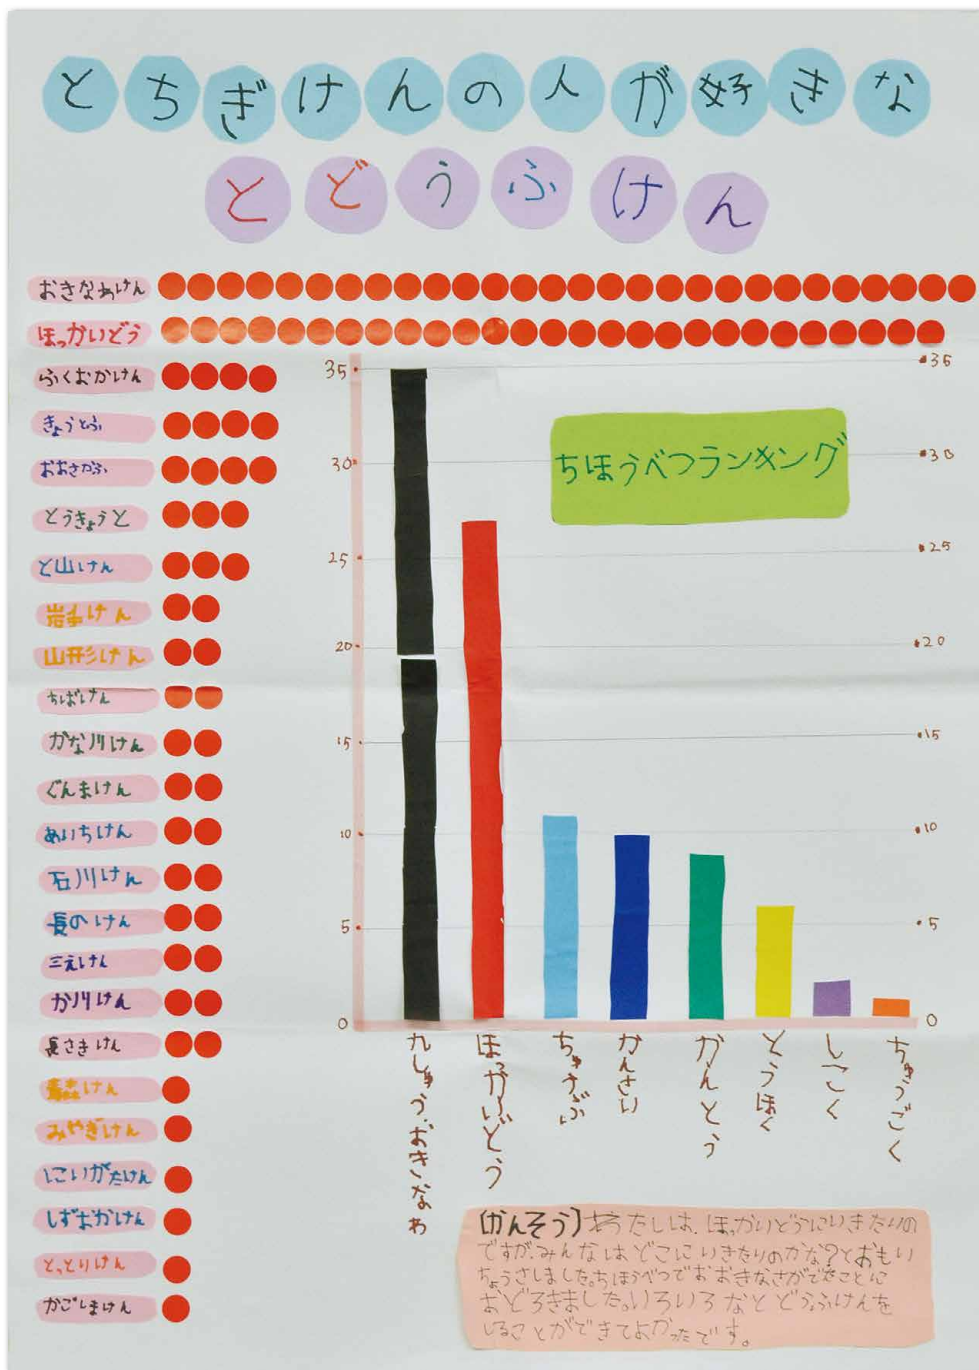 とちぎけんの人が好きな
とどうふけん
おきなわけん
ほっかいどう
ふくおかけん
きょうとふ
おおさかふ
とうきょうと
と山けん
岩手けん
山形けん
ちばけん
かな川けん
ぐんまけん
あいちけん
石川けん
長のけん
三えけん
か川けん
長さきけん
青森けん
みやぎけん
にいがたけん
しずおかけん
とっとりけん
かごしまけん
ちほうべつランキング
35
30
25
20
15
10
5
0
35
30
25
20
15
10
5
0
九しゅう・おきなわ
ほっかいどう
ちゅうぶ
かんさい
かんとう
とうほく
しこく
ちゅうごく
(かんそう)わたしは、ほっかいどうにいきたいの
ですが、みんなはどこにいきたいのかな?とおもい
ちょうさしました。ちほうべつでおおきなさがでたことに
おどろきました。いろいろなとどうふけんを
しることができてよかったです。